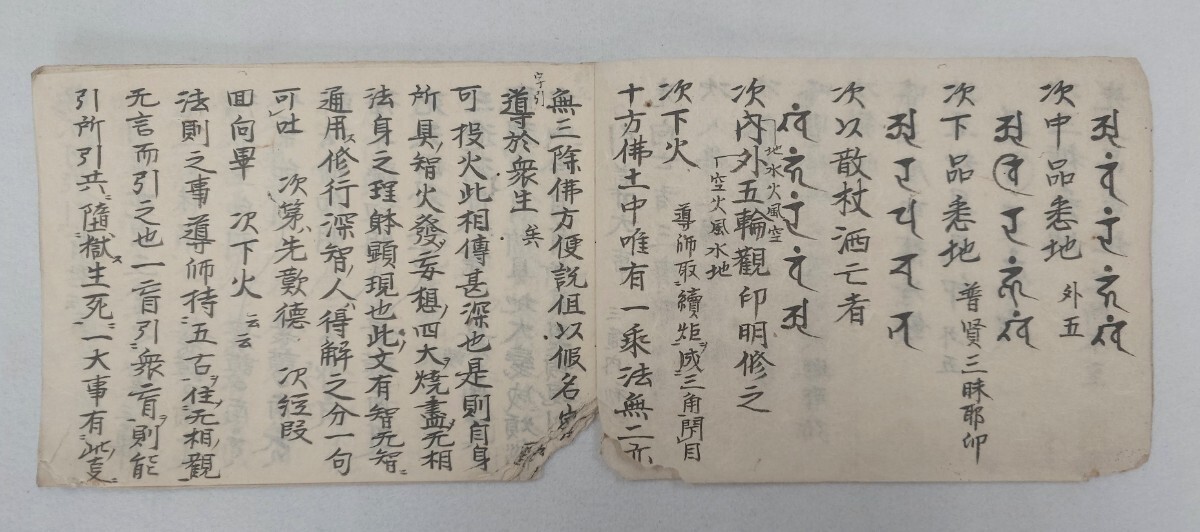 𑖀𑖪𑖽𑖨𑖽𑖮𑖽𑖏𑖽
次中品悉地 外五
𑖀𑖪𑖰𑖨𑖮𑖳𑖽𑖏𑖽
次下品悉地 普賢三昧耶印
𑖀𑖨𑖢𑖓𑖡
次以散杖洒亡者
𑖏𑖽𑖮𑖽𑖨𑖽𑖪𑖽𑖀
次内外五輪觀 印明修之
地水火風空
空火風水地
次下火 導師取續炬ヲ成三角閇目
十方佛土中唯有一乘法無二亦
無三除佛方便説但以仮名字
字引
導於衆生 矣
可投火此相傳甚深也是則自身
所具ノ智火發ヲ妄想ノ四大ヲ燒盡ヲ无相
法身之理躰顕現也此ノ文有智无智ニ
通用ス修行深智ノ人ハ得解之分一句
可吐 次第先歎德 次經段
回向畢 次下火 云云
法則之事導師持五古ヲ住ハ无相ノ觀ニ
无言而引之也一盲引衆盲ヲ則能
引所引共ニ隨獄ス生死ノ一大事有此ニ支